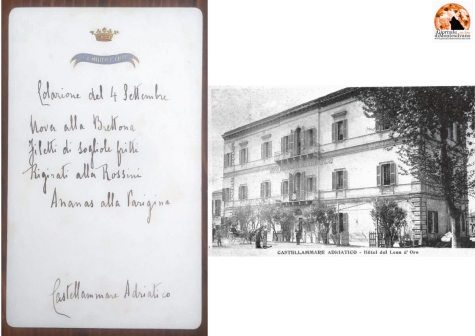 Colazione del 4 Settembre
Uova alla Brettona
Filetti di sogliole fritti
Rigirati alla Rossini
Ananas alla Parigina
Castellammare Adriatico
CASTELLAMMARE ADRIATICO - Hôtel del Leon d'Oro
il Giornale
di Montesilvano